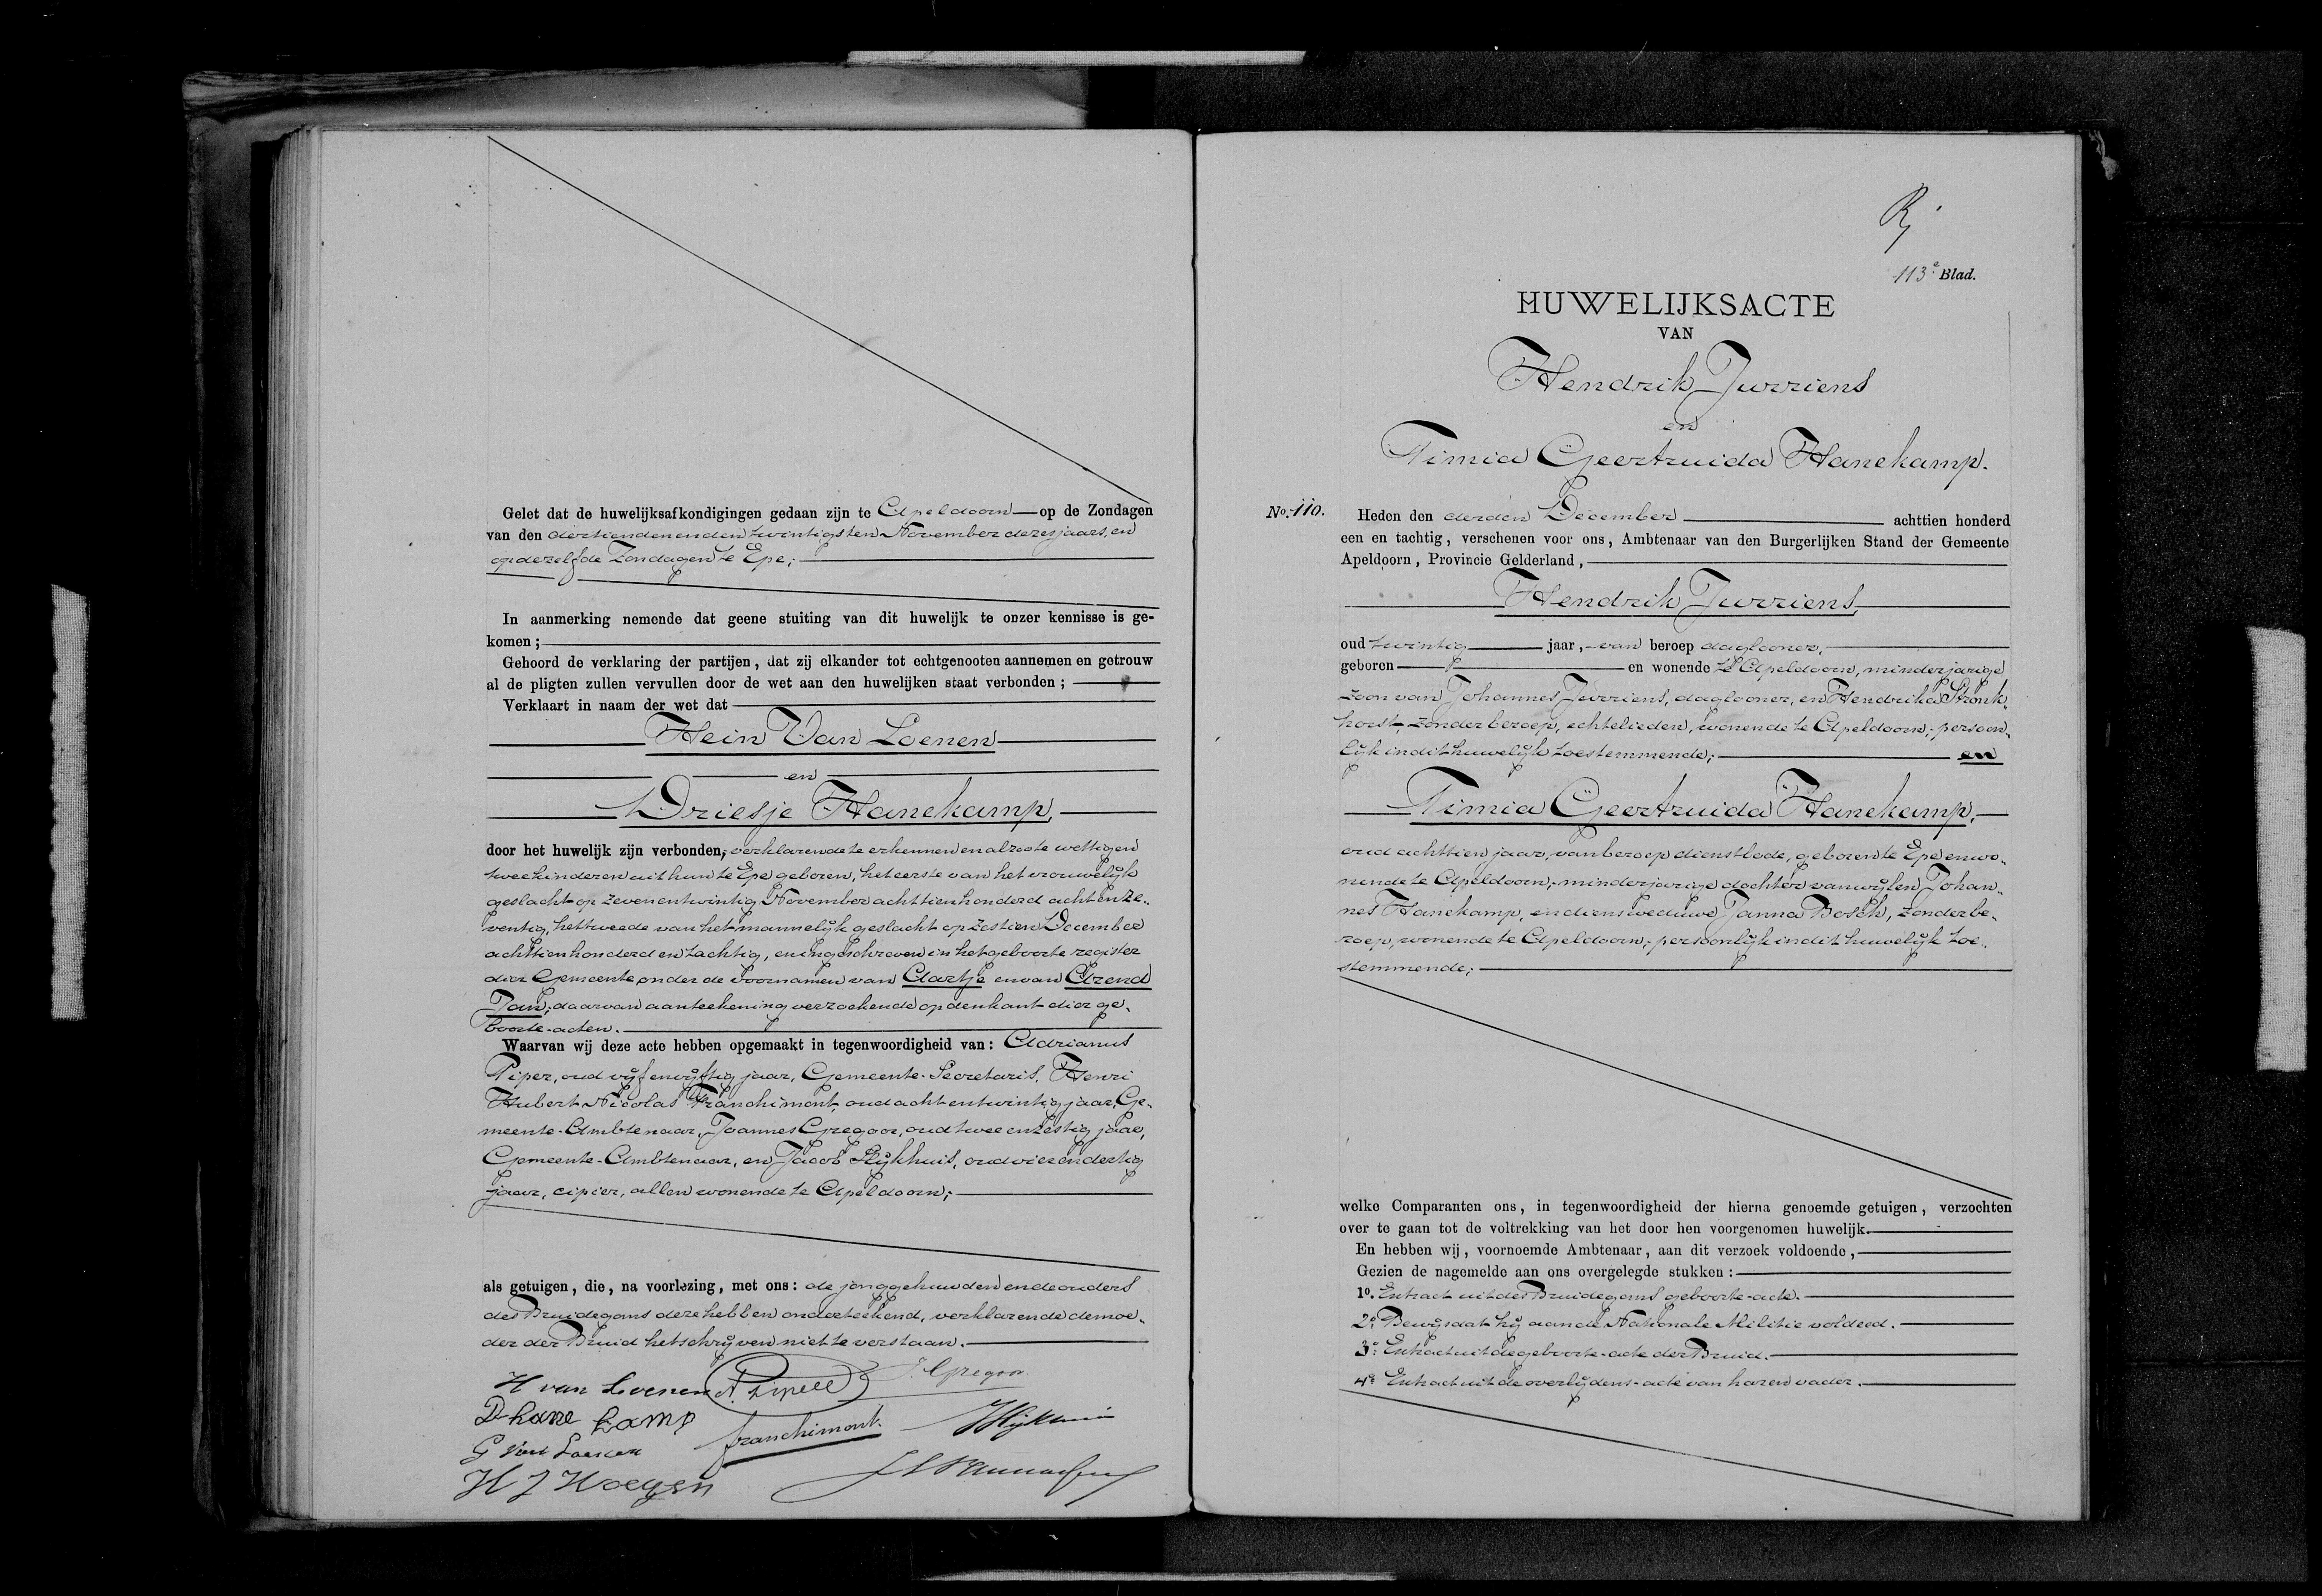 Gelet dat de huwelijksafkondigingen gedaan zijn te Apeldoorn op de Zondagen
van den dertienden en den twintigsten November dezes jaars, en
op dezelfde Zondagen te Epe;
In aanmerking nemende dat geene stuiting van dit huwelijk te onzer kennisse is ge-
komen;
Gehoord de verklaring der partijen, dat zij elkander tot echtgenooten aannemen en getrouw
al de pligten zullen vervullen door de wet aan den huwelijken staat verbonden;
Verklaart in naam der wet dat
Hein Van Loenen
en
Driesje Hanekamp,
door het huwelijk zijn verbonden; verklarende te erkennen en alzoo te wettigen
twee kinderen uit hun te Epe geboren, het eerste van het vrouwelijk
geslacht op zevenentwintig November achttienhonderd achtenze-
ventig, het tweede van het mannelijk geslacht op zestien December
achttienhonderd en tachtig, en ingeschreven in het geboorte register
dier Gemeente onder de voornamen van Aartje en van Arend
Jan, daarvan aanteekening verzoekende op den kant dier ge-
boorte-acten.
Waarvan wij deze acte hebben opgemaakt in tegenwoordigheid van: Adrianus
Piper, oud vijfenvijftig jaar, Gemeente-Secretaris, Henri
Hubert Nicolas Franchimont, oud achtentwintig jaar, Ge-
meente-Ambtenaar, Joannes Gregoor, oud tweeenzestig jaar,
Gemeente-Ambtenaar, en Jacob Slijkhuis, oud vierendertig
jaar, cipier, allen wonende te Apeldoorn;
als getuigen, die, na voorlezing, met ons: de jonggehuwden en de ouders
des Bruidegoms deze hebben onderteekend, verklarende de moe-
der der Bruid het schrijven niet te verstaan.
H van Loenen A. Piper J. Gregoor
D hane kamp franchimont.
G van Loenen
H J Hoegen
Rj
113e Blad.
HUWELIJKSACTE
VAN
Hendrik Jurriens
en
Timia Geertruida Hanekamp.
No. 110. Heden den derden December achttien honderd
een en tachtig, verschenen voor ons, Ambtenaar van den Burgerlijken Stand der Gemeente
Apeldoorn, Provincie Gelderland,
Hendrik Jurriens,
oud twintig jaar, van beroep daglooner,
geboren en wonende te Apeldoorn, minderjarige
zoon van Johannes Jurriens, daglooner, en Hendrika Stronk-
horst, zonder beroep, echtelieden, wonende te Apeldoorn, persoon-
lijk in dit huwelijk toestemmende; en
Timia Geertruida Hanekamp,
oud achttien jaar, van beroep dienstbode, geboren te Epe en wo-
nende te Apeldoorn, minderjarige dochter van wijlen Johan-
nes Hanekamp, en diens weduwe Janna Bosch, zonder be-
roep, wonende te Apeldoorn, persoonlijk in dit huwelijk toe-
stemmende;
welke Comparanten ons, in tegenwoordigheid der hierna genoemde getuigen, verzochten
over te gaan tot de voltrekking van het door hen voorgenomen huwelijk.
En hebben wij, voornoemde Ambtenaar, aan dit verzoek voldoende,
Gezien de nagemelde aan ons overgelegde stukken:
1o. Extract uit des Bruidegoms geboorte-acte.
2o. Bewijs dat hij aan de Nationale Militie voldeed.
3o. Extract uit de geboorte-acte der Bruid.
4o. Extract uit de overlijdens-acte van haren vader.